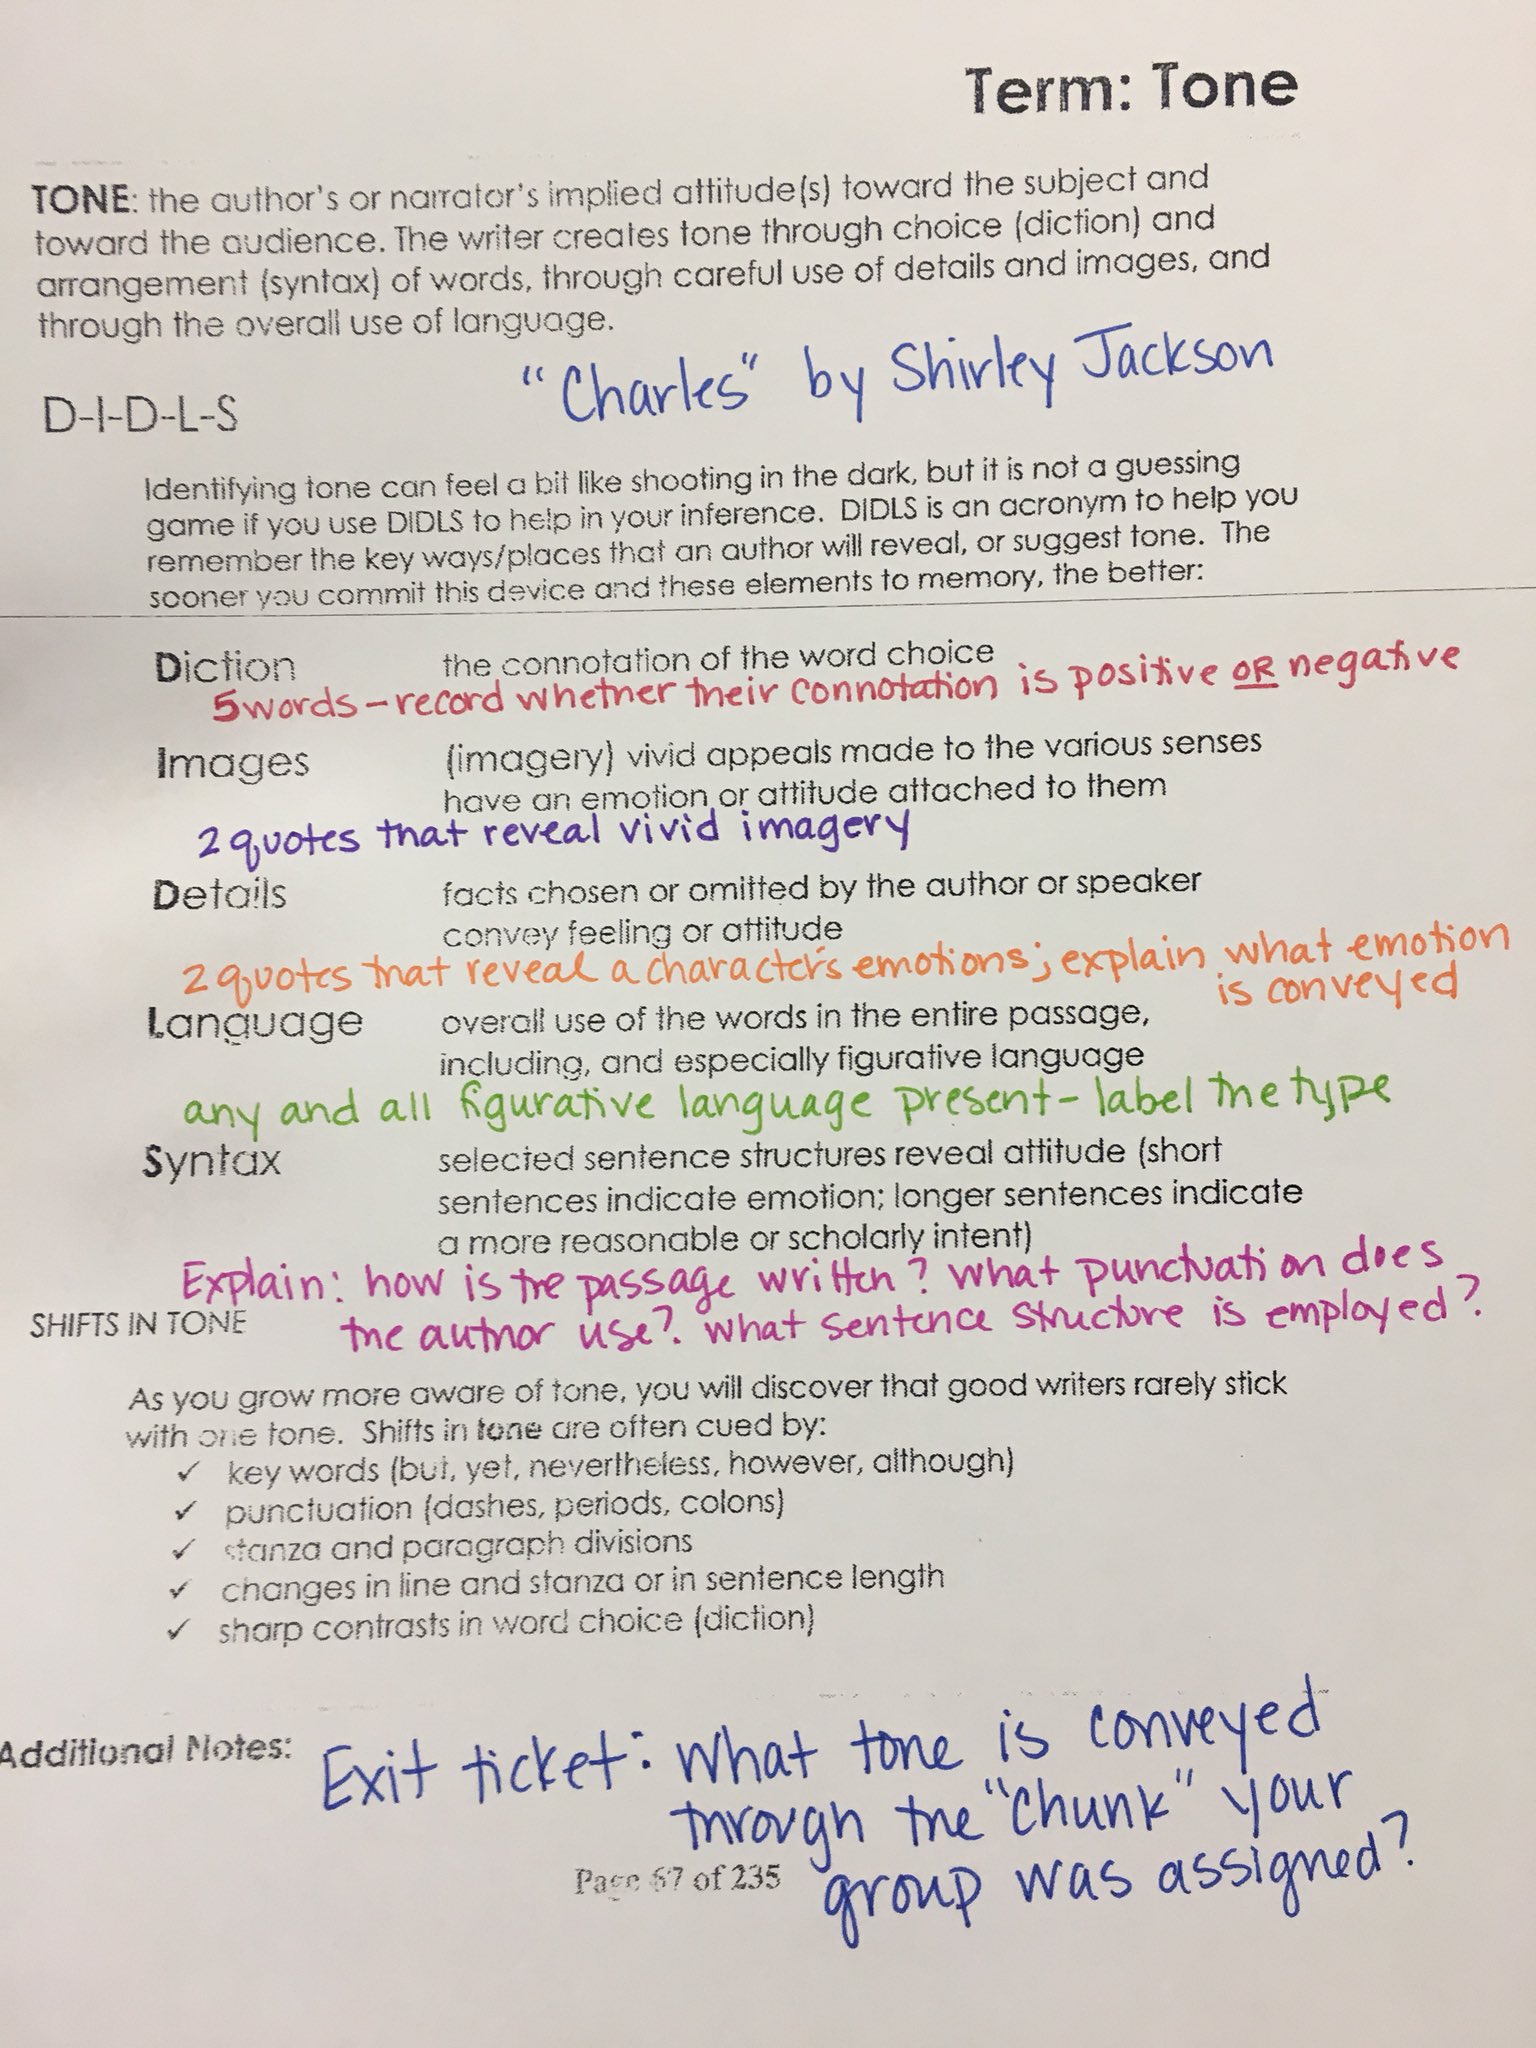 Term: Tone
TONE: the author's or narrator's implied attitude(s) toward the subject and
toward the audience. The writer creates tone through choice (diction) and
arrangement (syntax) of words, through careful use of details and images, and
through the overall use of language.
"Charles" by Shirley Jackson
D-I-D-L-S
Identifying tone can feel a bit like shooting in the dark, but it is not a guessing
game if you use DIDLS to help in your inference. DIDLS is an acronym to help you
remember the key ways/places that an author will reveal, or suggest tone. The
sooner you commit this device and these elements to memory, the better:
Diction the connotation of the word choice
5 words - record whether their connotation is positive OR negative
Images (imagery) vivid appeals made to the various senses
have an emotion or attitude attached to them
2 quotes that reveal vivid imagery
Details facts chosen or omitted by the author or speaker
convey feeling or attitude
2 quotes that reveal a character's emotions; explain what emotion
is conveyed
Language overall use of the words in the entire passage,
including, and especially figurative language
any and all figurative language present - label the type
Syntax selected sentence structures reveal attitude (short
sentences indicate emotion; longer sentences indicate
a more reasonable or scholarly intent)
Explain: how is the passage written? What punctuation does
the author use? What sentence structure is employed?
SHIFTS IN TONE
As you grow more aware of tone, you will discover that good writers rarely stick
with one tone. Shifts in tone are often cued by:
✓ key words (but, yet, nevertheless, however, although)
✓ punctuation (dashes, periods, colons)
✓ stanza and paragraph divisions
✓ changes in line and stanza or in sentence length
✓ sharp contrasts in word choice (diction)
Additional Notes:
Exit ticket: What tone is conveyed
through the "Chunk" your
group was assigned?
Page 67 of 235